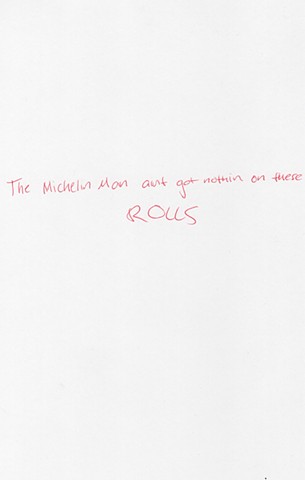 The Michelin Man aint got nothin on there
ROLLS